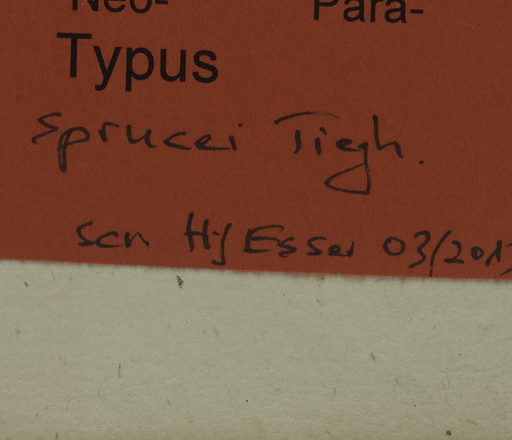 Neo- Para-
Typus
sprucei Tiegh.
scn HJ Esser 03/2013